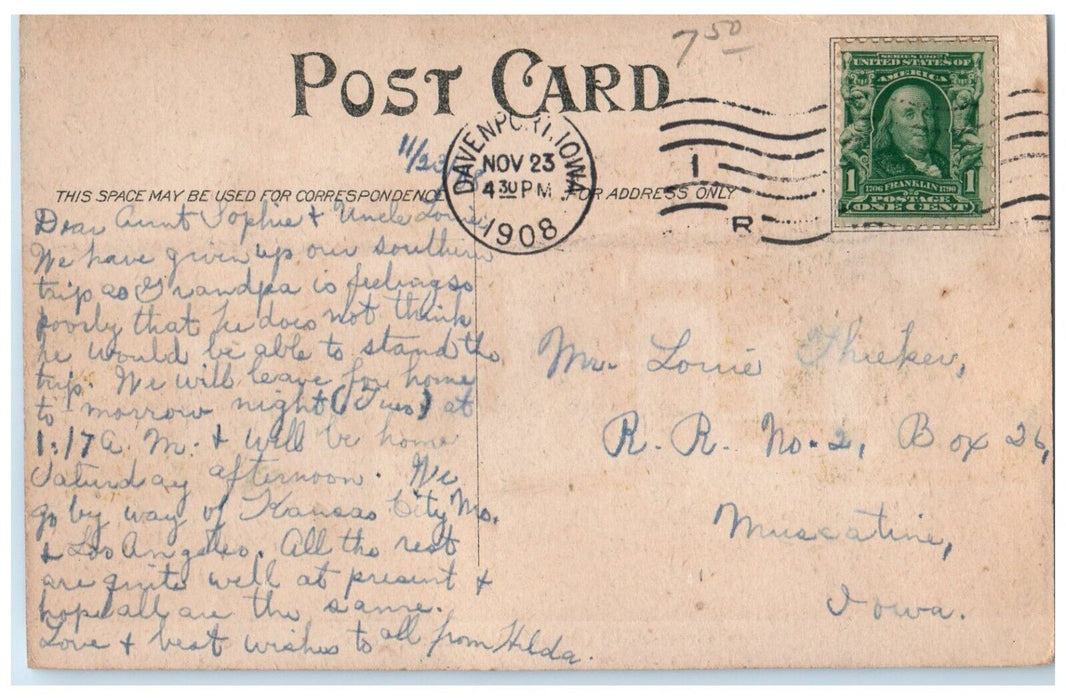 7 50
POST CARD
SERIES 1902
UNITED STATES OF
AMERICA
1 1706 FRANKLIN 1790 1
POSTAGE
ONE CENT
DAVENPORT, IOWA
NOV 23
4 30 PM
1908
1
R
11/23
THIS SPACE MAY BE USED FOR CORRESPONDENCE
FOR ADDRESS ONLY
Dear Aunt Sophie & Uncle Louie,
We have given up our southern
trip as Grandpa is feeling so
poorly that he does not think
he would be able to stand the
trip. We will leave for home
to morrow night (Tues) at
1:17 A. M. & will be home
Saturday afternoon. We
go by way of Kansas City Mo.
& Los Angeles. All the rest
are quite well at present &
hope all are the same.
Love & best wishes to all from Hilda.
Mr. Louie Thieker,
R. R. No. 2, Box 26,
Muscatine,
Iowa.